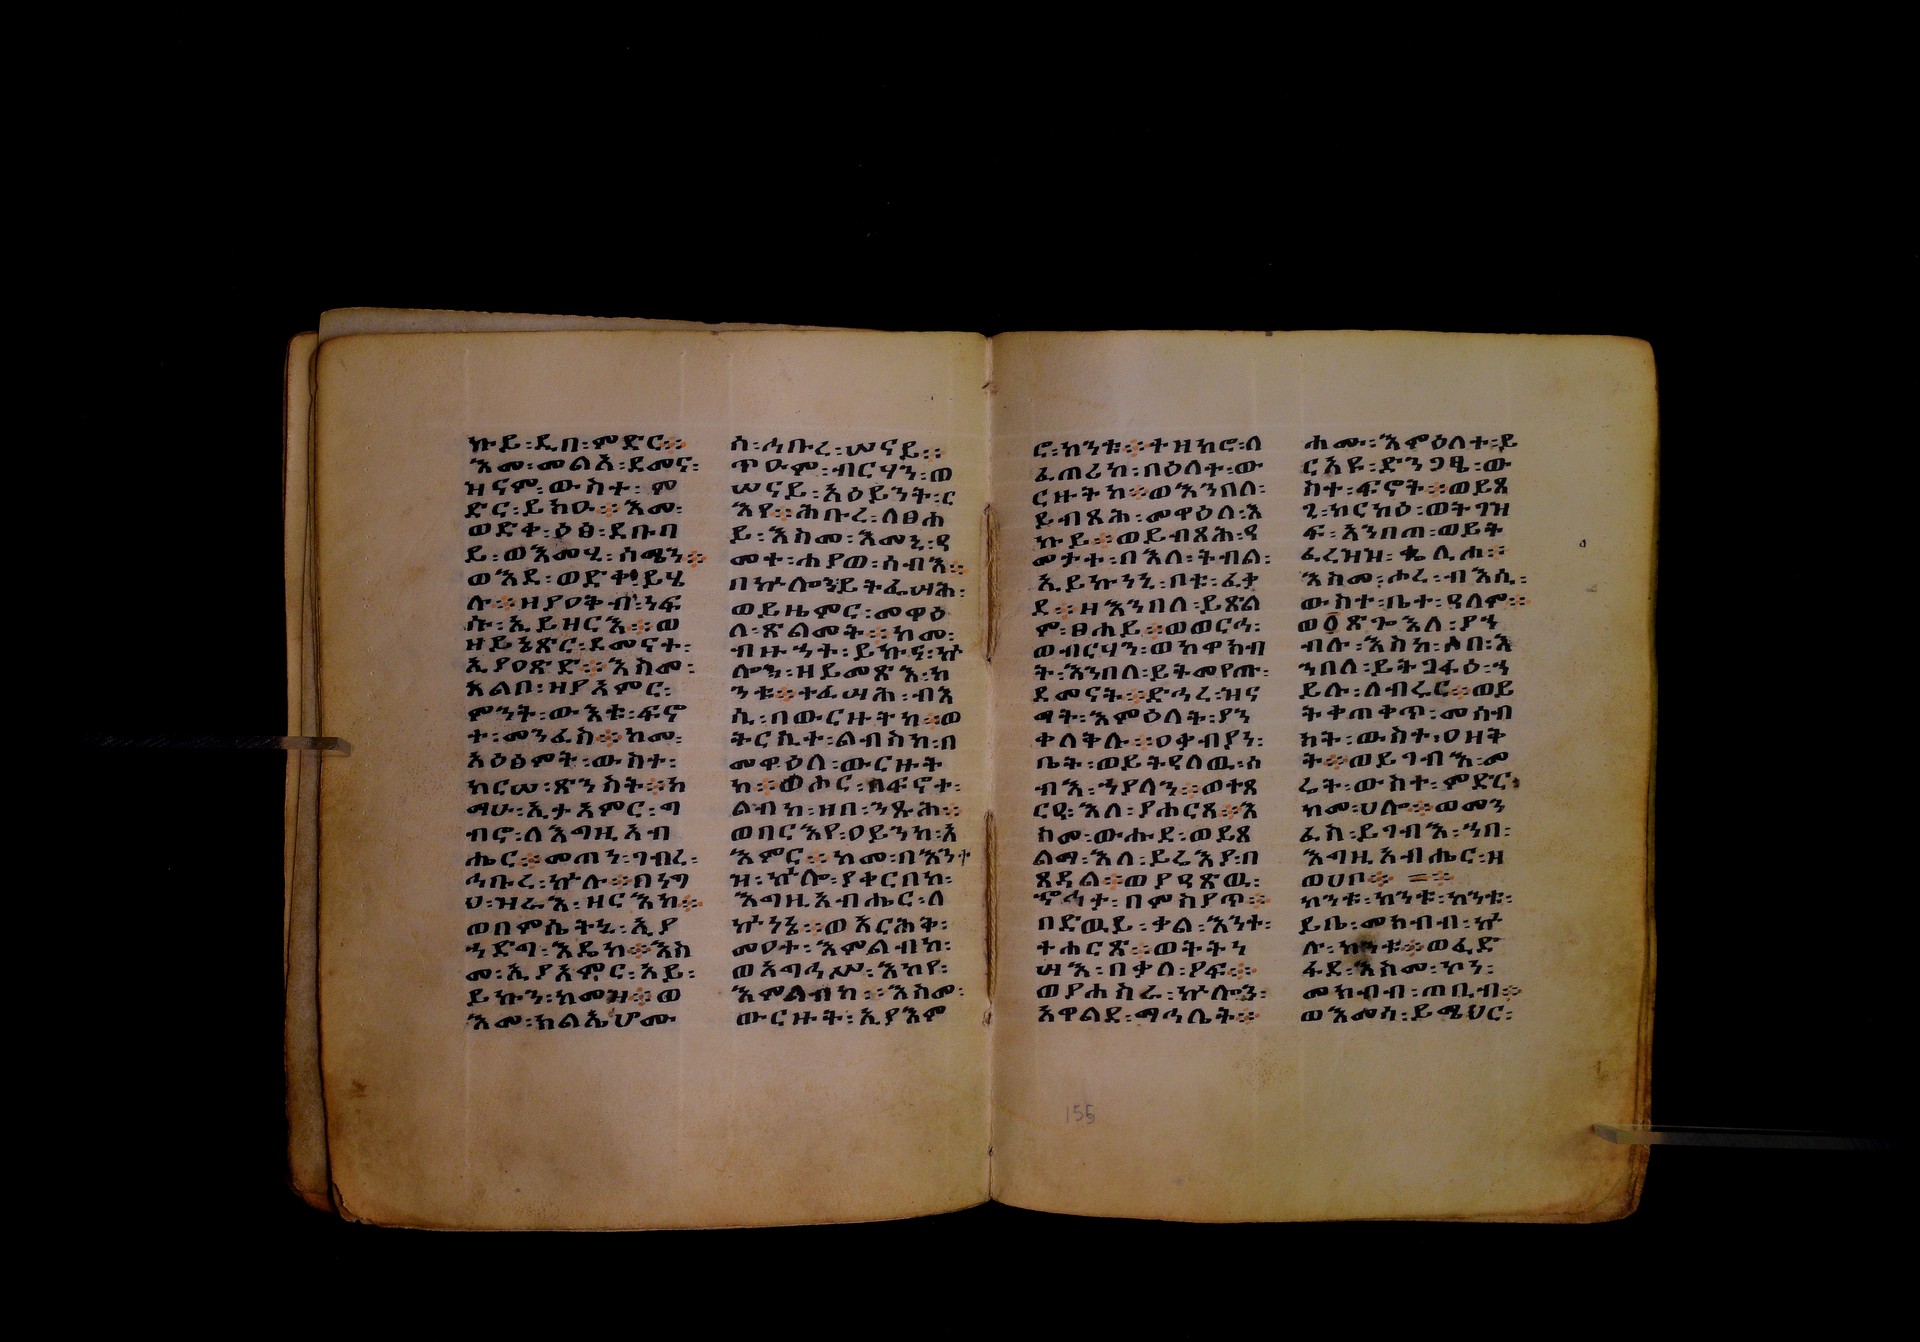 ኩይ፡ዲበ፡ምድር።
እመ፡መልአ፡ደመና፡
ዝናም፡ውስተ፡ም
ድር፡ይክዑ።እመ፡
ወድቀ፡ዕፅ፡ደቡባ
ይ፡ወእመሂ፡ሰሜን።
ወእደ፡ወድቀ፡ይሄ
ሉ።ዘያዐትብ፡ነፍ
ሱ፡ኢይዘርእ።ወ
ዘይኔጽር፡ደመናተ፡
ኢያዐጽድ።እስመ፡
አልቦ፡ዘያአምር፡
ምንት፡ውእቱ፡ፍኖ
ተ፡መንፈስ።ከመ፡
አዕፅምት፡ውስተ፡
ከርሠ፡ጽንስት።ከ
ማሁ፡ኢታአምር፡ግ
ብሮ፡ለእግዚአብ
ሔር።መጠነ፡ገብረ፡
ኅቡረ፡ኵሉ።በነግ
ህ፡ዝራእ፡ዘርእከ።
ወበምሴትኒ፡ኢያ
ኅድግ፡እዴከ።እስ
መ፡ኢያአምር፡አይ፡
ይኩን፡ከመዝ።ወ
እመ፡ክልኤሆሙ
ሰ፡ኅቡረ፡ሠናይ።
ጥዑም፡ብርሃን፡ወ
ሠናይ፡አዕይንት፡ር
እየ።ኅቡረ፡ለፀሐ
ይ፡እስመ፡እመኒ፡ዓ
መተ፡ሐያወ፡ሰብእ።
በኵሎን፡ይትፌሣሕ፡
ወይዜምር፡መዋዕ
ለ፡ጽልመት።ከመ፡
ብዙኅት፡ይኩና፡ኵ
ሎን፡ዘይመጽእ፡ከ
ንቱ።ተፈሣሕ፡ብእ
ሲ፡በውርዙትከ።ወ
ትርኪተ፡ልብስከ፡በ
መዋዕለ፡ውርዙት
ከ።ወሖር፡በፍኖተ፡
ልብከ፡ዘበ፡ንጹሕ።
ወበርእየ፡ዐይንከ፡አ
እምር።ከመ፡በእንተ
ዝ፡ኵሎ፡ያቀርበከ፡
እግዚአብሔር፡ለ
ኵነኔ።ወአርሕቅ፡
መዐተ፡እምልብከ፡
ወአግኅሥ፡እኩየ፡
እምልብከ።እስመ፡
ውርዙት፡ኢያእም
ሮ፡ከንቱ።ተዘከሮ፡ለ
ፈጠሪከ፡በዕለተ፡ው
ርዙትከ።ወእንበለ፡
ይብጻሕ፡መዋዕለ፡እ
ኩይ።ወይብጻሕ፡ዓ
መታተ፡በእለ፡ትብል፡
ኢይኩነኒ፡በቱ፡ፈቃ
ደ።ዘእንበለ፡ይጽል
ም፡ፀሐይ።ወወርኅ፡
ወብርሃን፡ወከዋክብ
ት፡እንበለ፡ይትመየጡ፡
ደመናት።ድኅረ፡ዝና
ማት፡እምዕለት፡ያን
ቀለቅሉ።ዐቃብያነ፡
ቤት፡ወይትዳለዉ፡ሰ
ብእ፡ኀያላን።ወተጸ
ርዓ፡እለ፡ያሐርጻ።እ
ስመ፡ውሑደ፡ወይጸ
ልማ፡እለ፡ይሬእያ፡በ
ጸዳል።ወያዓጽዉ፡
ኆኅታ፡በምስያጥ።
በድዉይ፡ቃል፡እንተ፡
ተሐርጽ።ወትትነ
ሣእ፡በቃለ፡ያፍ።
ወያሐስራ፡ኵሎን፡
አዋልደ፡ማኅሌት።
ሐሙ፡እምዕለተ፡ይ
ርአዩ፡ድንጋፄ፡ው
ስተ፡ፍኖት።ወይጸ
ጊ፡ከርካዕ፡ወትገዝ
ፍ፡አንበጠ፡ወይት
ፈረዝዝ፡ቈሊሐ።
እስመ፡ሖረ፡ብእሲ፡
ውስተ፡ቤተ፡ዓለሞ።
ወዐጽጐ፡እለ፡ያን
ብሉ፡እስከ፡አበ፡እ
ንበለ፡ይትጋፋዕ፡ኀ
ይሉ፡ለብሩር።ወይ
ትቀጠቀጥ፡መሰብ
ክት፡ውስተ፡ዐዘቅ
ት።ወይገብእ፡መ
ሬት፡ውስተ፡ምድር፡
ከመ፡ሀሎ።ወመን
ፈስ፡ይገብእ፡ኀበ፡
እግዚአብሔር፡ዘ
ወሀቦ።
ከንቱ፡ከንቱ፡ከንቱ፡
ይቤ፡መክብብ፡ኵ
ሉ፡ከንቱ።ወፈድ
ፋደ፡እስመ፡ኮነ፡
መክብብ፡ጠቢብ።
ወእመሰ፡ይሜህር፡
155